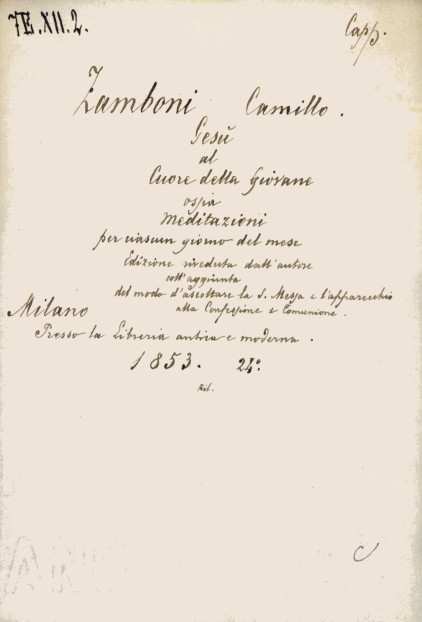 7E.XII.2.
Capp.
Zamboni Camillo.
Gesù
al
Cuore della Giovane
ossia
Meditazioni
per ciascun giorno del mese
Edizione riveduta dall'autore
coll'aggiunta
del modo d'ascoltare la S. Messa e l'apparecchio
alla Confessione e Comunione.
Milano
Presso la Libreria antica e moderna.
1853. 24°.
Ril.